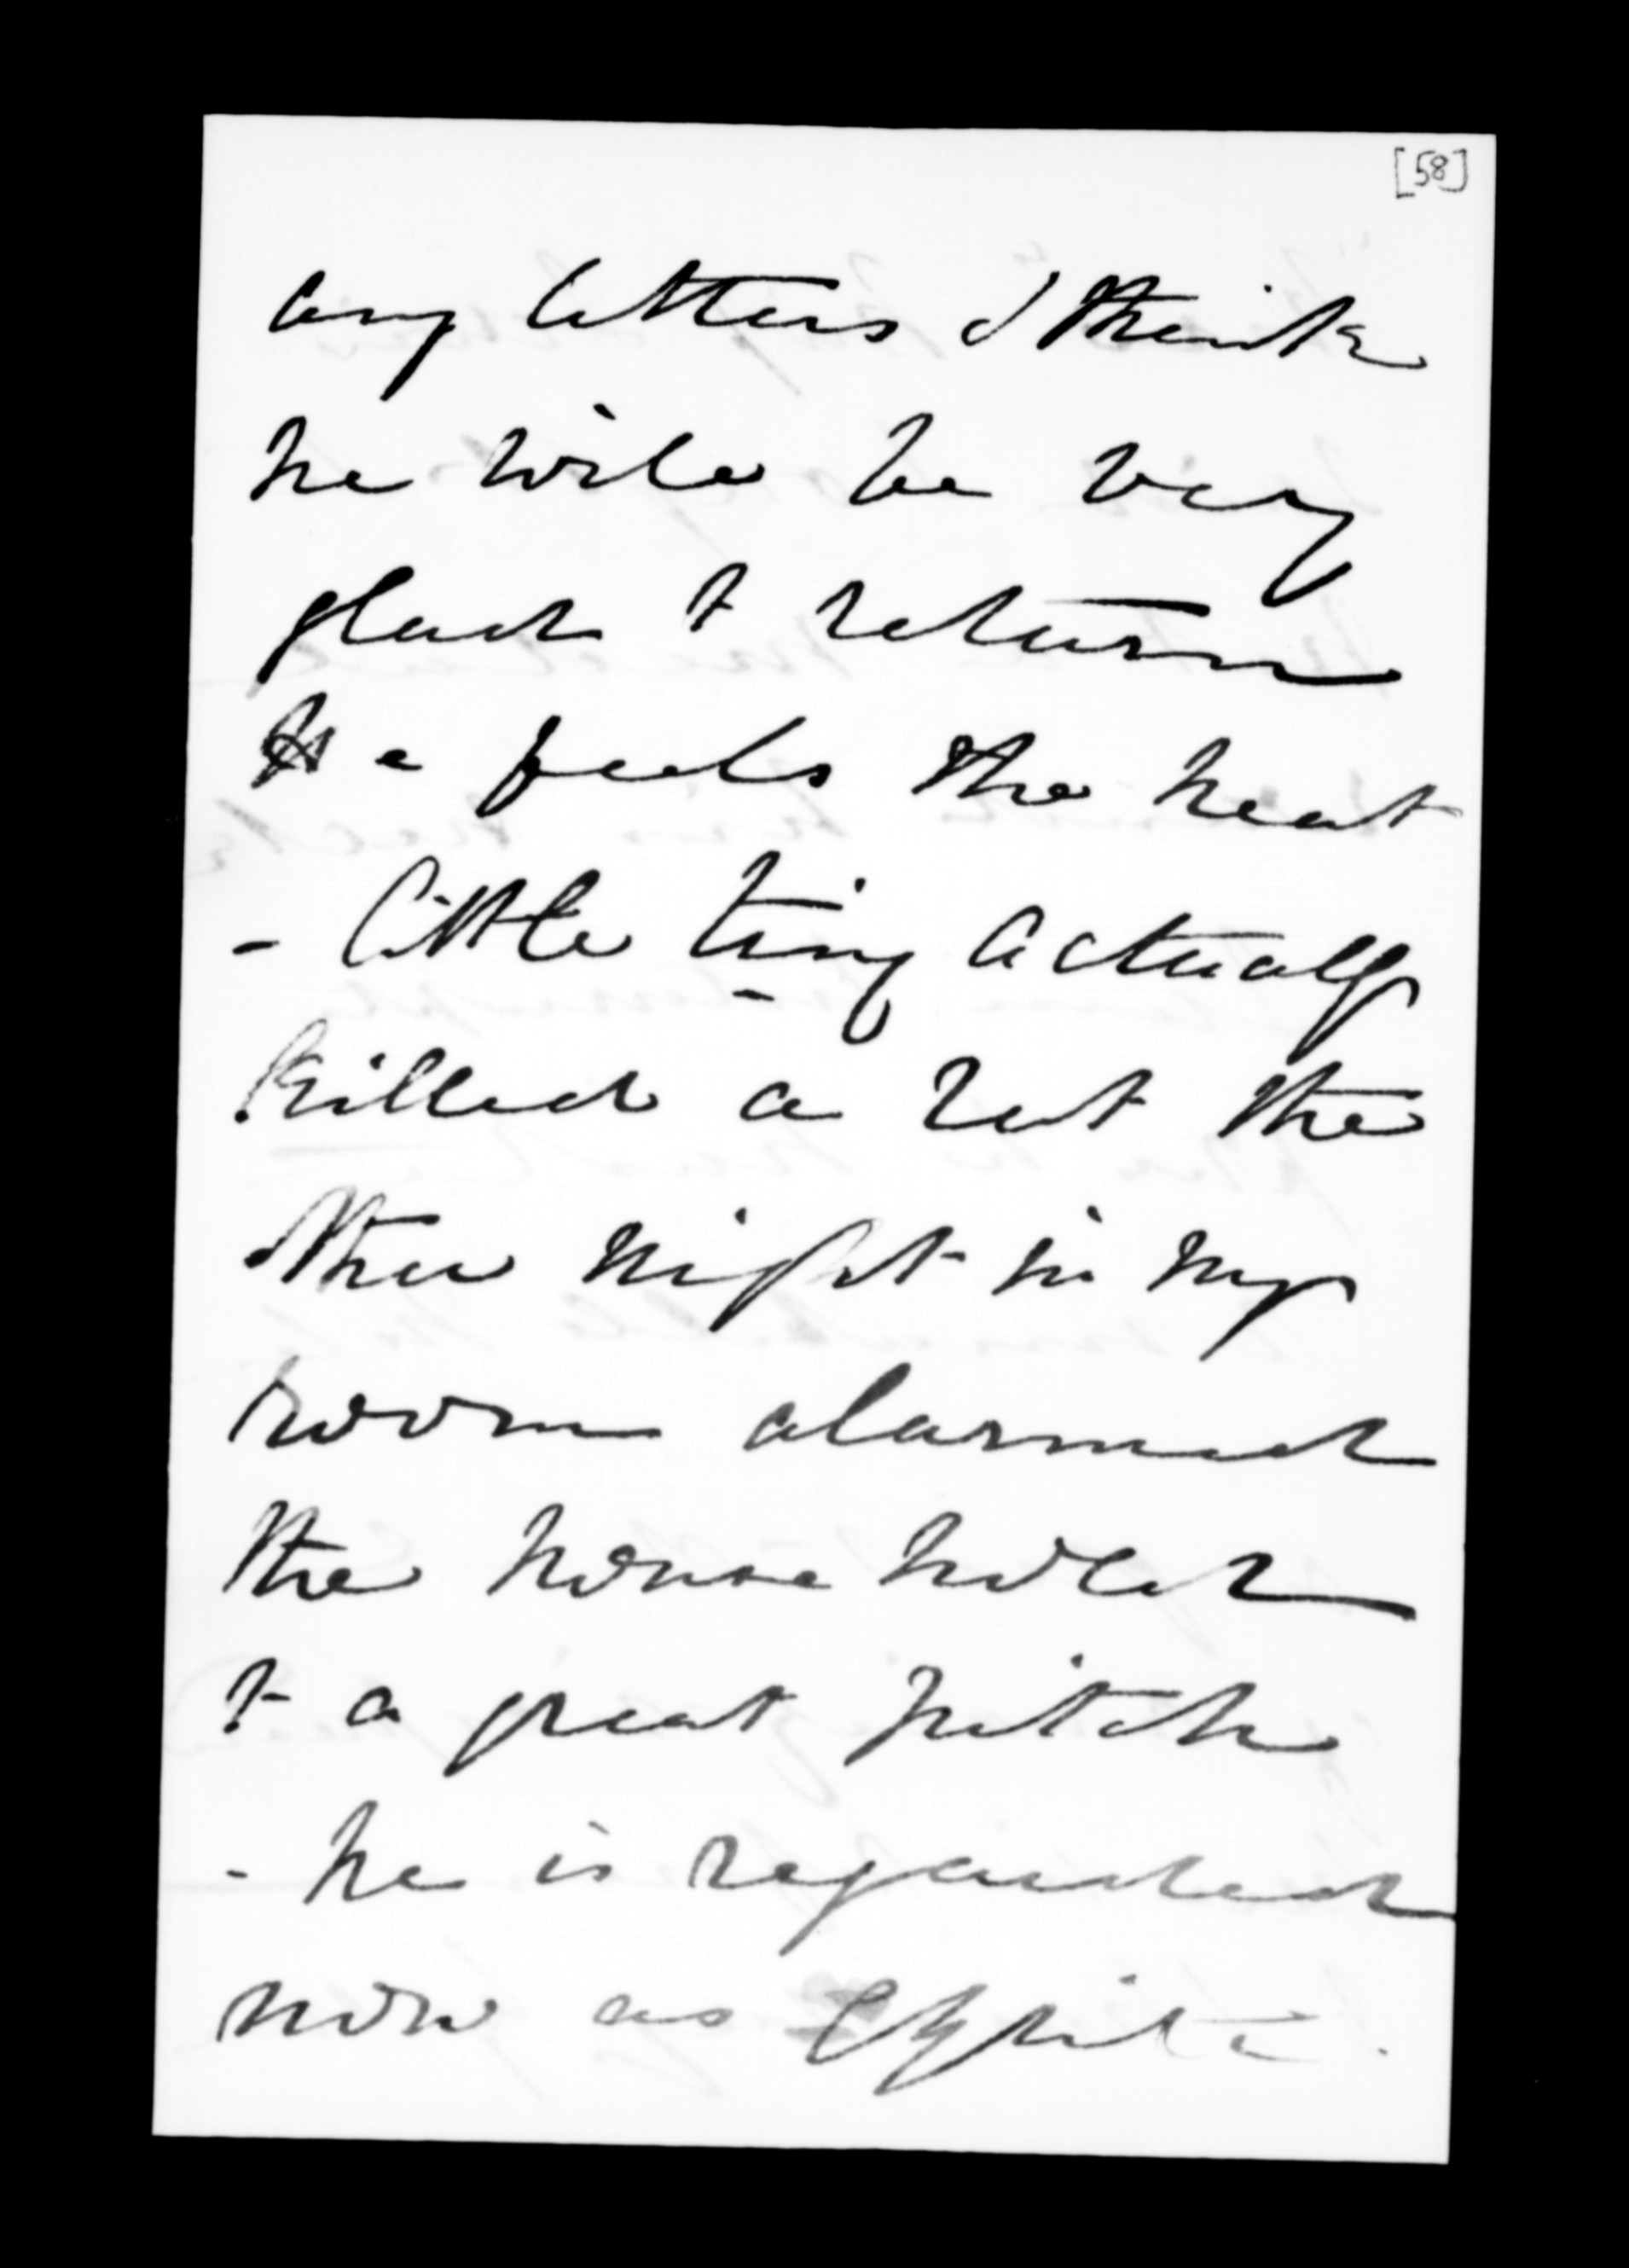 [58]
any letters I think
he will be very
glad to return
He feels the heat
- little tiny actually
killed a rat the
other night in my
room alarmed
the house hold
to a great pitch
- he is regarded
now as quite